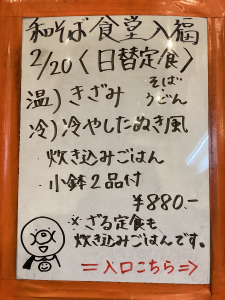 和そば食堂入福
2/20〈日替定食〉
温)きざみ そば
冷)冷やしたぬき風 うどん
・炊き込みごはん
・小鉢2品付
¥880.-
※ざる定食も
炊き込みごはんです。
=入口こちら=>